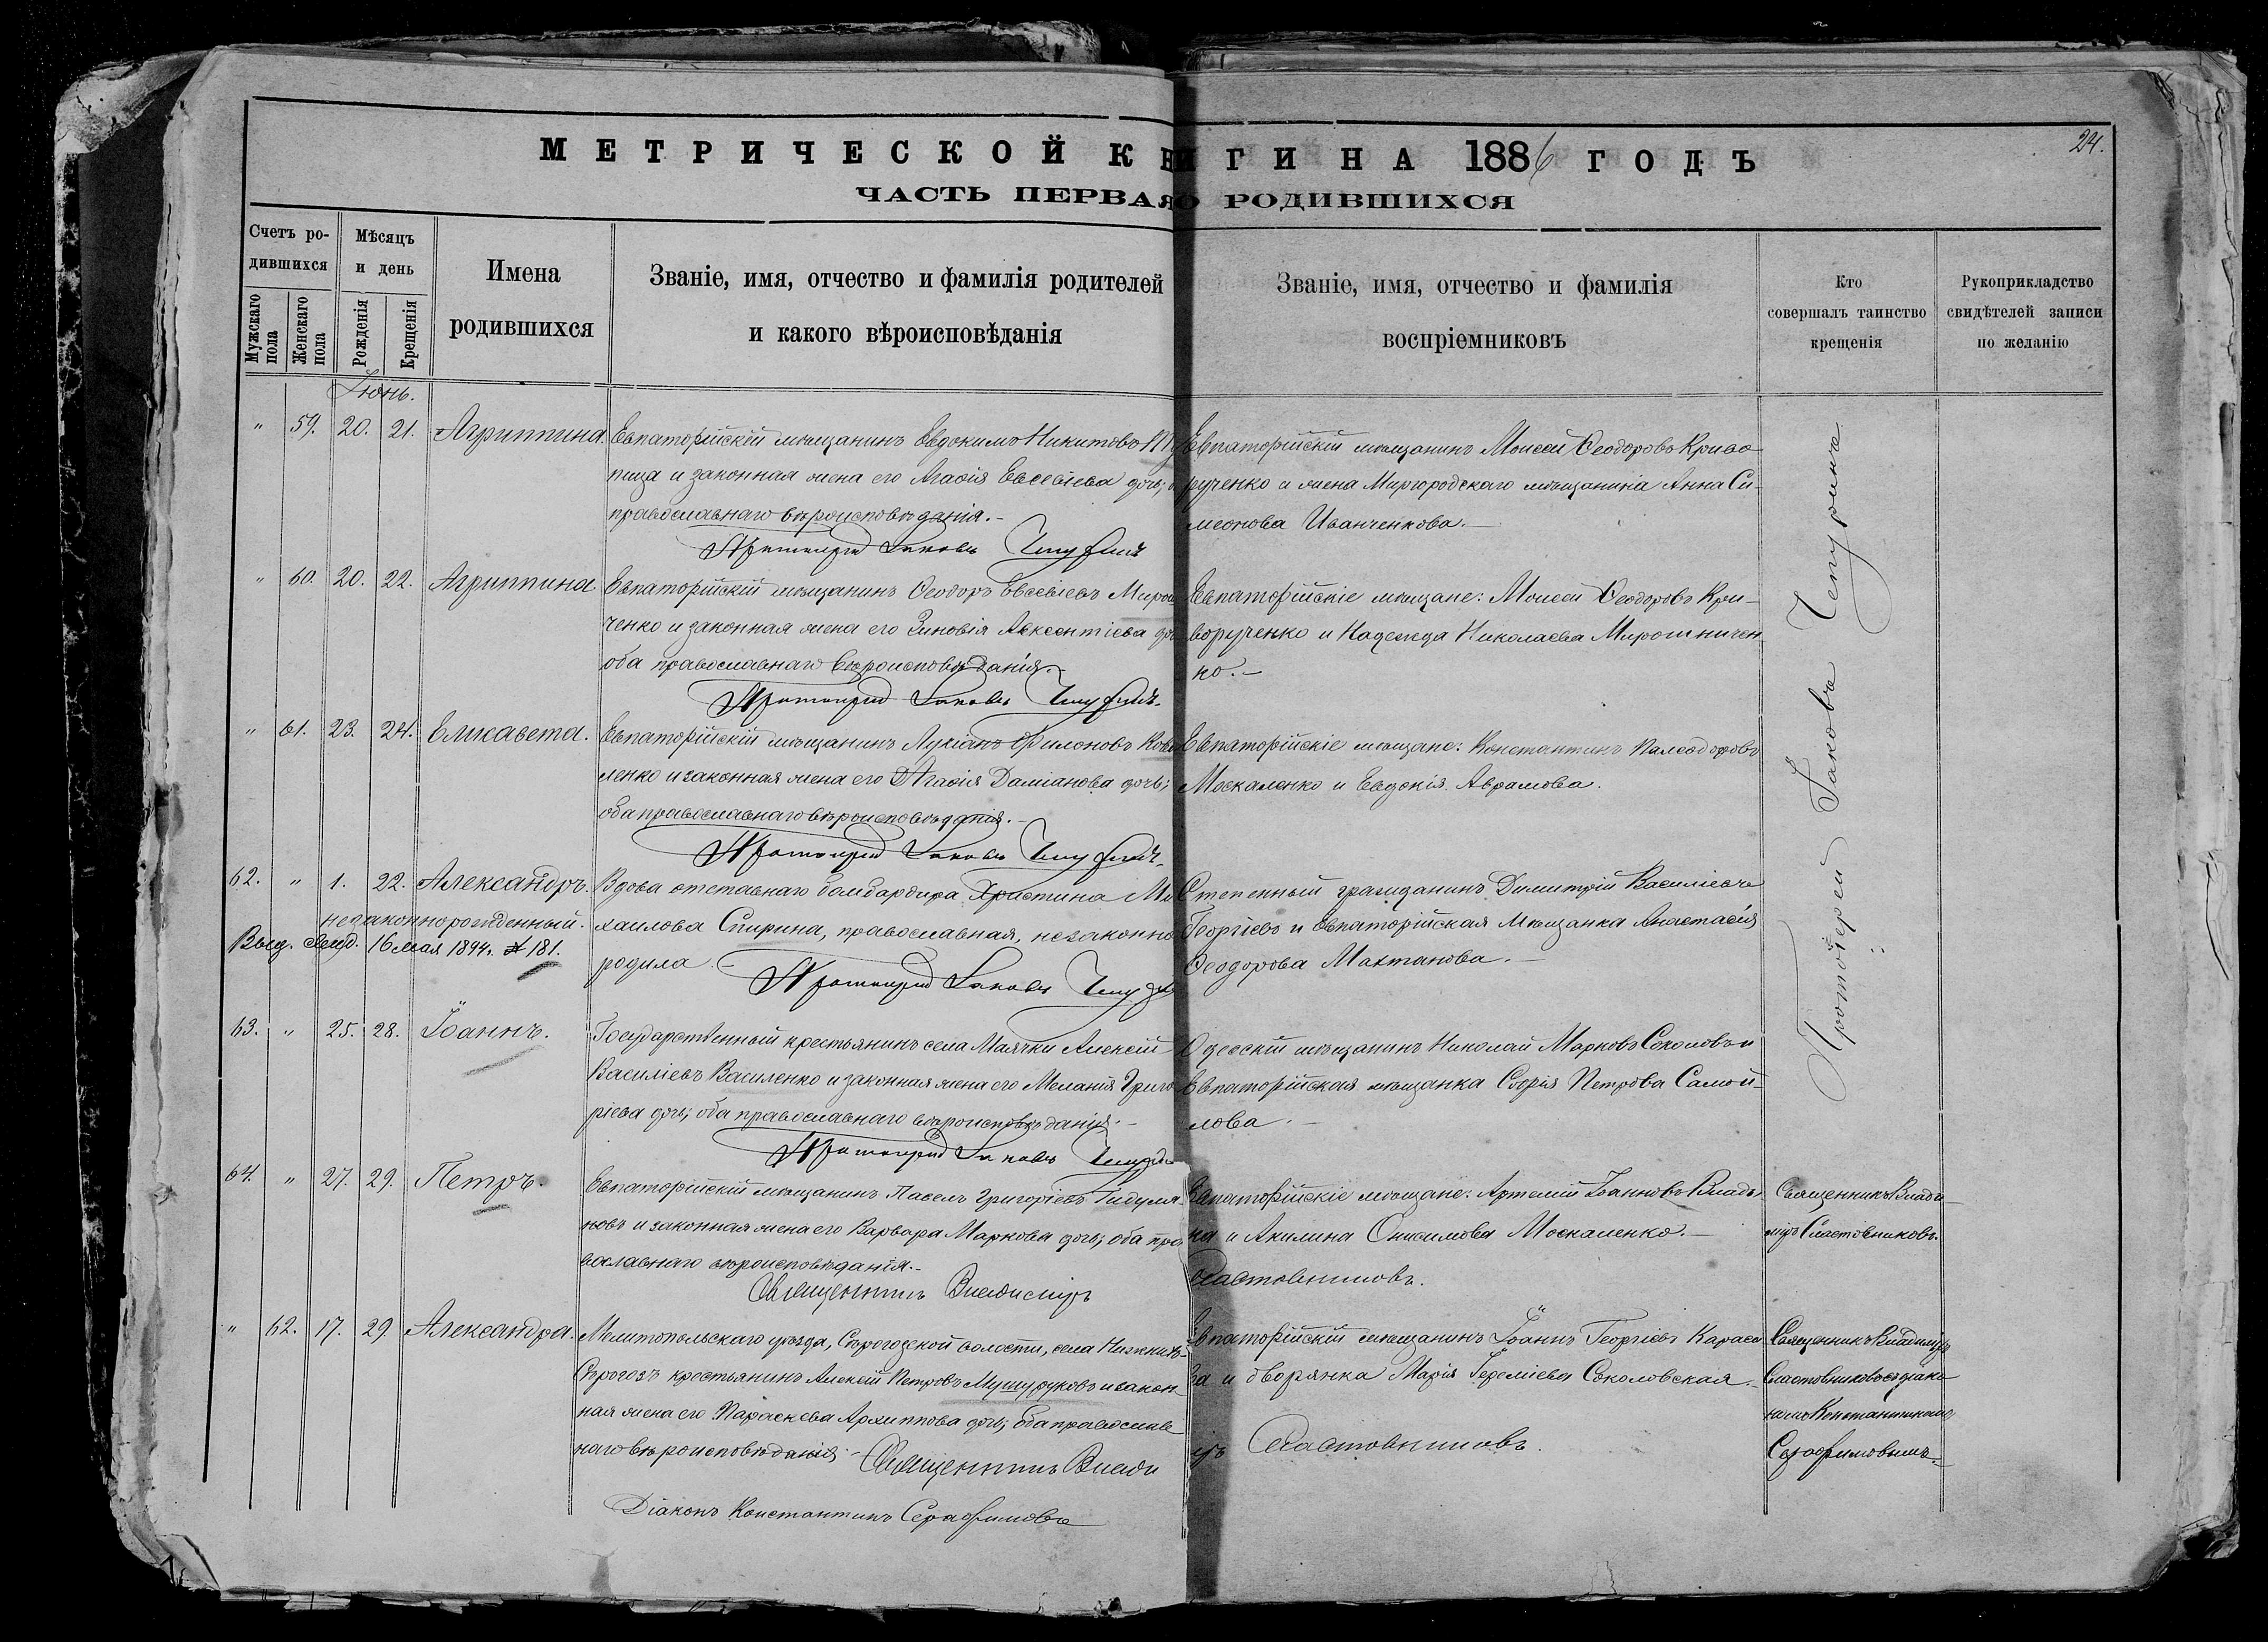 24.
МЕТРИЧЕСКОЙ КНИГИ НА 1886 ГОДЪ
ЧАСТЬ ПЕРВАЯ О РОДИВШИХСЯ
Счетъ ро-
дившихся
Мужскаго пола
Женскаго пола
Мѣсяцъ
и день
Рожденія
Крещенія
Имена
родившихся
Званіе, имя, отчество и фамилія родителей
и какого вѣроисповѣданія
Званіе, имя, отчество и фамилія
воспріемниковъ
Кто
совершалъ таинство
крещенія
Рукоприкладство
свидѣтелей записи
по желанію
Іюнь.
" 59. 20. 21. Агриппина
Евпаторійскій мѣщанинъ Евдокимъ Никитовъ
пица и законная жена его Агафія Евсевіева дочь;
православнаго вѣроисповѣданія.-
Протоіерей Іаковъ Чепуринъ
Евпаторійскій мѣщанинъ Моисей Ѳеодоровъ Криво-
рученко и жена Миргородскаго мѣщанина Анна Си-
меонова Иванченкова.-
Протоіерей Іаковъ Чепуринъ
" 60. 20. 22. Агриппина
Евпаторійскій мѣщанинъ Ѳеодоръ Евсевіевъ Мирош
ченко и законная жена его Зиновія Авксентіева
оба православнаго вѣроисповѣданія.-
Протоіерей Іаковъ Чепуринъ.
Евпаторійскіе мѣщане: Моисей Ѳеодоровъ Кри-
ворученко и Надежда Николаева Мирошничен
ко.-
" 61. 23. 24. Елисавета.
Евпаторійскій мѣщанинъ Лукіанъ Филоновъ Кова
ленко и законная жена его Агафія Даміанова дочь;
оба православнаго вѣроисповѣданія.-
Протоіерей Іаковъ Чепуринъ.
Евпаторійскіе мѣщане: Константинъ
Москаленко и Евдокія Аврамова.
62. " 1. 22. Александръ.
незаконнорожденный.
Выд. свид. 16 мая 1894 г. № 181.
Вдова отставнаго бомбардира Христина Ми
хаилова Спирина, православная, незаконно
родила.-
Протоіерей Іаковъ
Степенный гражданинъ Димитрій Василіевъ
Георгіевъ и Евпаторійская мѣщанка Анастасія
Ѳеодорова Махтанова.-
63. " 25. 28. Іоаннъ.
Государственный крестьянинъ села Маячки Алексій
Василіевъ Василенко и законная жена его Меланія Григо
ріева дочь; оба православнаго вѣроисповѣданія.-
Протоіерей Іаковъ
Одесскій мѣщанинъ Николай Марковъ Соколовъ и
Евпаторійская мѣщанка Софія Петрова Самой-
лова.-
64. " 27. 29. Петръ.
Евпаторійскій мѣщанинъ Павелъ Григоріевъ
новъ и законная жена его Варвара Маркова дочь; оба пра
вославнаго вѣроисповѣданія.-
Священникъ Владиміръ
Евпаторійскіе мѣщане: Артемій Іоанновъ Влады
ка и Акилина Онисимова Москаленко.-
Сластовниковъ.
Священникъ Влади-
міръ Сластовниковъ.
" 62. 17. 29. Александра.
Мелитопольскаго уѣзда, Сѣрогозской волости, села Нижнихъ-
Сѣрогозъ крестьянинъ Алексій Петровъ Мушуруковъ и закон-
ная жена его Параскева Архиппова дочь; оба православ
наго вѣроисповѣданія.- Священникъ Влади
Діаконъ Константинъ Серафимовъ
Евпаторійскій мѣщанинъ Іоаннъ Георгіевъ Караса
ва и дворянка Марія Іереміева Соколовская.-
міръ Сластовниковъ.
Священникъ Владиміръ
Сластовниковъ съ діако
номъ Константиномъ
Серафимовымъ.